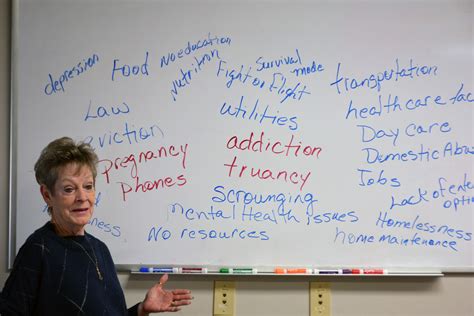 depression
Food
no education
nutrition
Survival mode
Fight or Flight
transportation
Law
utilities
healthcare fac
eviction
addiction
Day care
pregnancy
truancy
Domestic Abu
phones
Scrounging
Jobs
Mental Health issues
Lack of
option
No resources
Homelessness
home maintenance